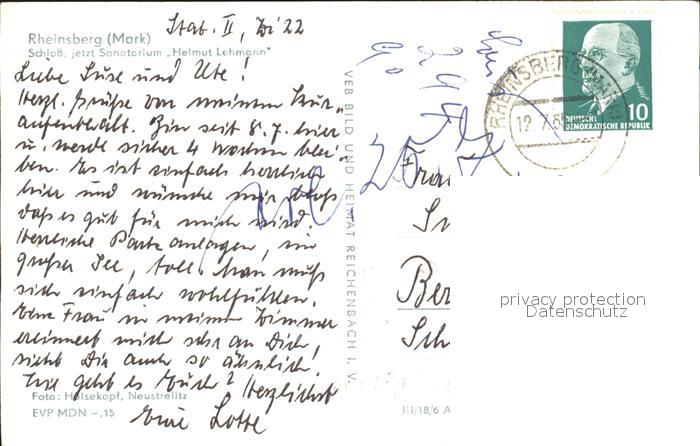 Stat. II, Zi 22
Rheinsberg (Mark)
Schloß, jetzt Sanatorium „Helmut Lehmann"
Liebe Suse und Ute!
Herzl. Grüße von meinem Kur-
aufenthalt. Bin seit 8.7. hier
u. werde sicher 4 Wochen blei-
ben. Es ist einfach herrlich
hier und wünsche mir bloß
daß es gut für mich wird.
Herrliche Parkanlagen, ein
großer See, toll. Man muß
sich einfach wohlfühlen.
Eine Frau in meinem Zimmer
erinnert mich sehr an Dich,
sieht Dir auch so ähnlich.
Wie geht es Euch? Herzlichst
Eure Lotte
Foto: Halsekopf, Neustrelitz
EVP MDN -,15
VEB BILD UND HEIMAT REICHENBACH I. V.
III/18/6 A
RHEINSBERG
12. 7. 6
10
DEUTSCHE
DEMOKRATISCHE REPUBLIK
Frau
Ber
Sch
privacy protection
Datenschutz